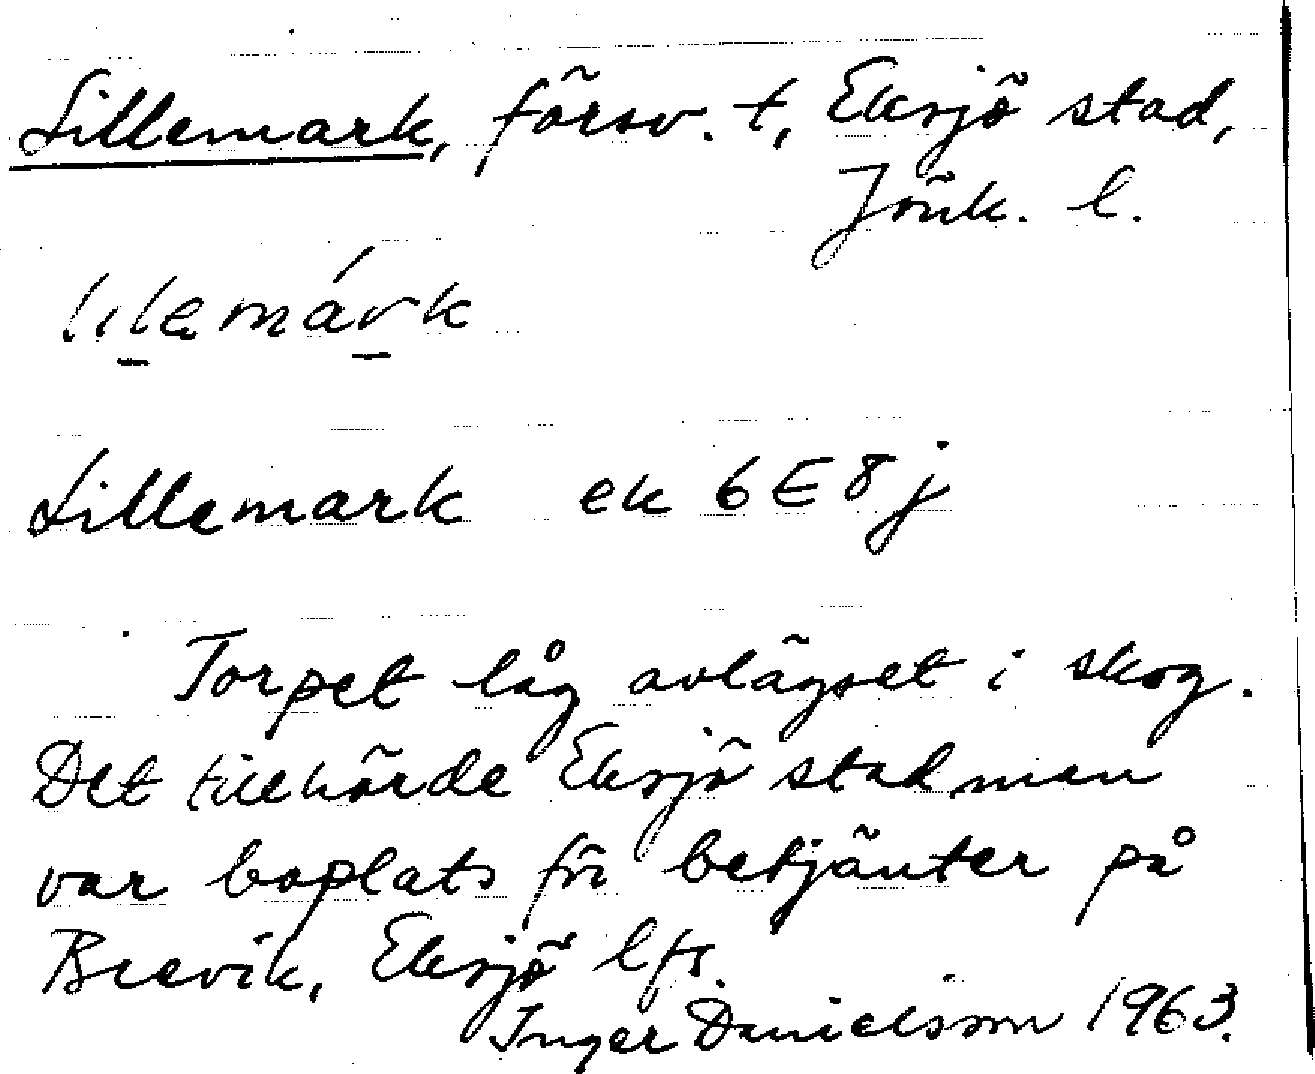 Lillemark, försv. t, Eksjö stad,
Jönk. l.
lilemárk
Lillemark ek 6E8j
Torpet låg avlägset i skog.
Det tillhörde Eksjö stad men
var boplats för betjänter på
Brevik, Eksjö lfs.
Inger Danielsson 1963.